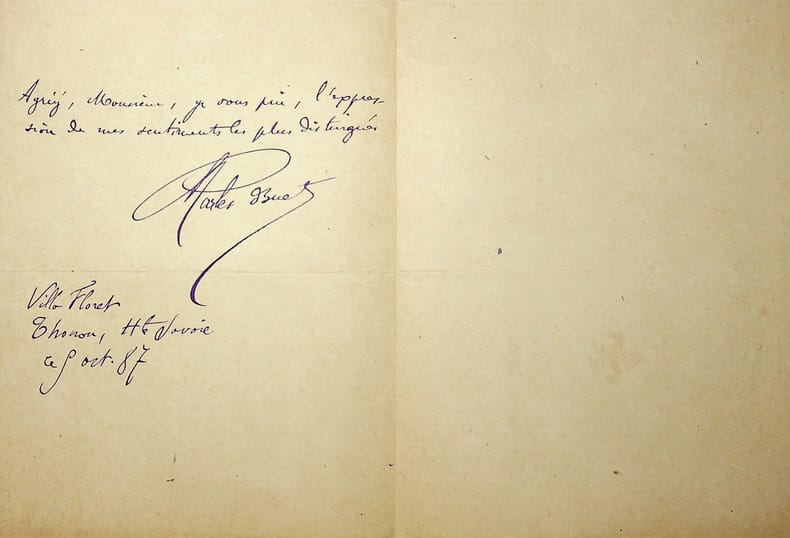 Agréez, Monsieur, je vous prie, l'expres-
sion de mes sentiments les plus distingués
Charles Buet
Villa Floret
Thonon, Hte Savoie
ce 9 oct. 87